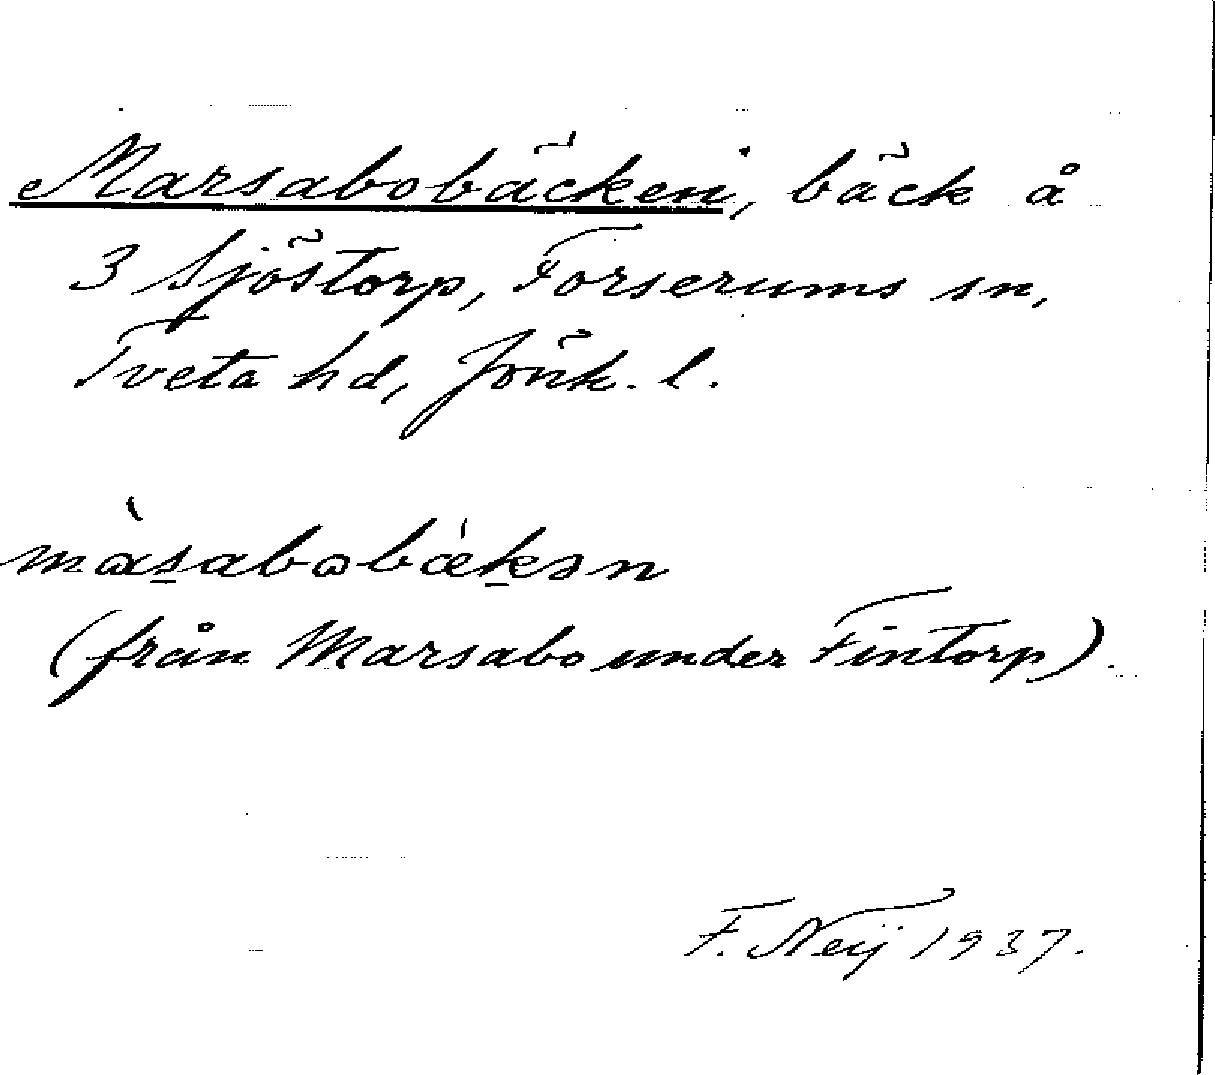 Marsabobäcken, bäck å
3 Sjöstorp, Forserums sn,
Tveta hd, Jönk. l.
mɑ̀s̲abɷbǽk̲ən
(från Marsabo under Fintorp).
F. Neij 1937.